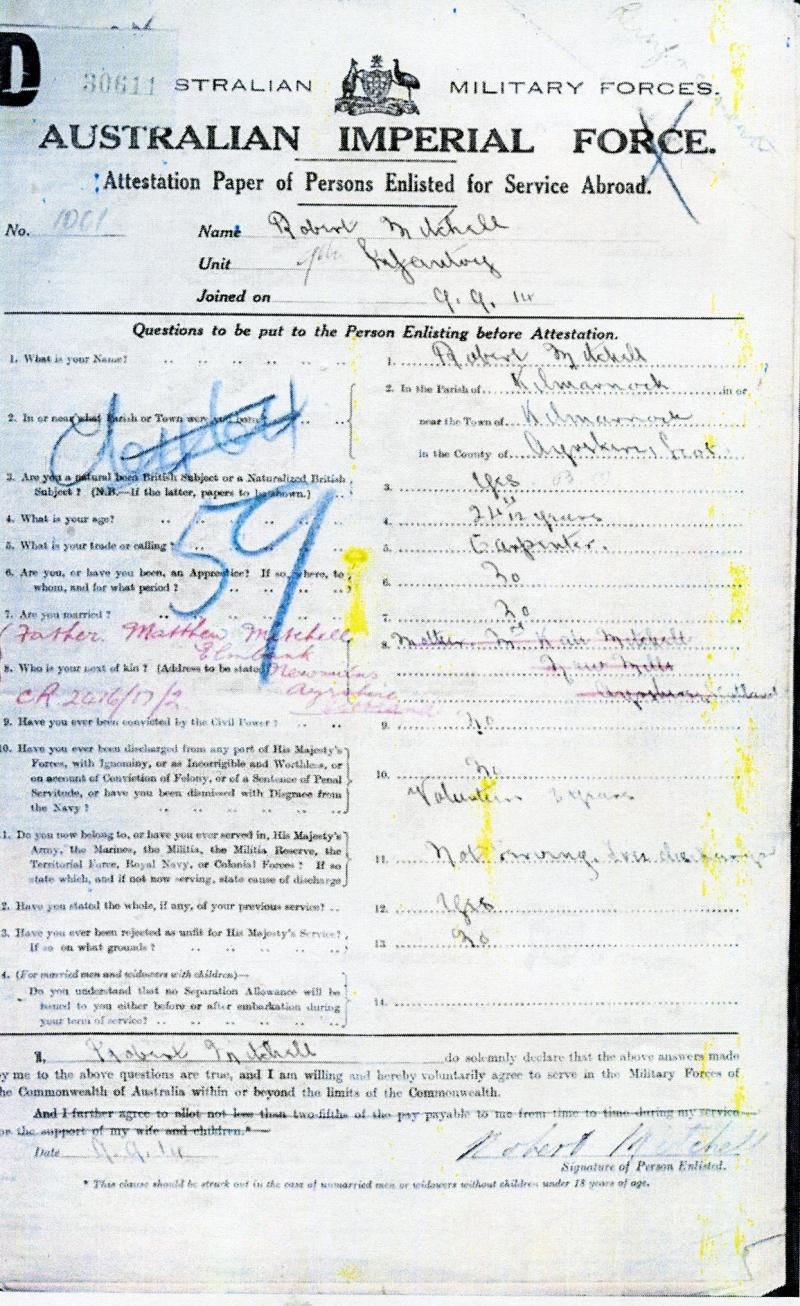 D
30611 STRALIAN MILITARY FORCES.
AUSTRALIAN IMPERIAL FORCE.
Attestation Paper of Persons Enlisted for Service Abroad.
No. 1061 Name Robert Mitchell
Unit Infantry
Joined on 9.9.14
Questions to be put to the Person Enlisting before Attestation.
1. What is your Name? 1. Robert Mitchell
2. In or near what Parish or Town were you born? 2. In the Parish of Kilmarnock in or
near the Town of Kilmarnock
in the County of Ayrshire, Scot.
3. Are you a natural born British Subject or a Naturalized British
Subject? (N.B.—If the latter, papers to be shown.) 3. Yes
4. What is your age? 4. 24 years
5. What is your trade or calling? 5. Carpenter.
59
6. Are you, or have you been, an Apprentice? If so, where, to
whom, and for what period? 6. No
7. Are you married? 7. No
(Father. Matthew Mitchell
8. Who is your next of kin? (Address to be stated) 8. Mother Kate Mitchell
Newmilns
Ayrshire
Scotland
9. Have you ever been convicted by the Civil Power? 9. No
10. Have you ever been discharged from any part of His Majesty's
Forces, with Ignominy, or as Incorrigible and Worthless, or
on account of Conviction of Felony, or of a Sentence of Penal
Servitude, or have you been dismissed with Disgrace from
the Navy? 10. No
Volunteers 3 years
1. Do you now belong to, or have you ever served in, His Majesty's
Army, the Marines, the Militia, the Militia Reserve, the
Territorial Force, Royal Navy, or Colonial Forces? If so
state which, and if not now serving, state cause of discharge 11. Not serving.
2. Have you stated the whole, if any, of your previous service? 12. Yes
3. Have you ever been rejected as unfit for His Majesty's Service?
If so on what grounds? 13. No
4. (For married men and widowers with children)—
Do you understand that no Separation Allowance will be
issued to you either before or after embarkation during
your term of service? 14.
I, Robert Mitchell do solemnly declare that the above answers made
by me to the above questions are true, and I am willing and hereby voluntarily agree to serve in the Military Forces of
the Commonwealth of Australia within or beyond the limits of the Commonwealth.
And I further agree to allot not less than two-fifths of the pay payable to me from time to time during my service
for the support of my wife and children.*
Date 9.9.14 Robert Mitchell
Signature of Person Enlisted.
* This clause should be struck out in the case of unmarried men or widowers without children under 18 years of age.